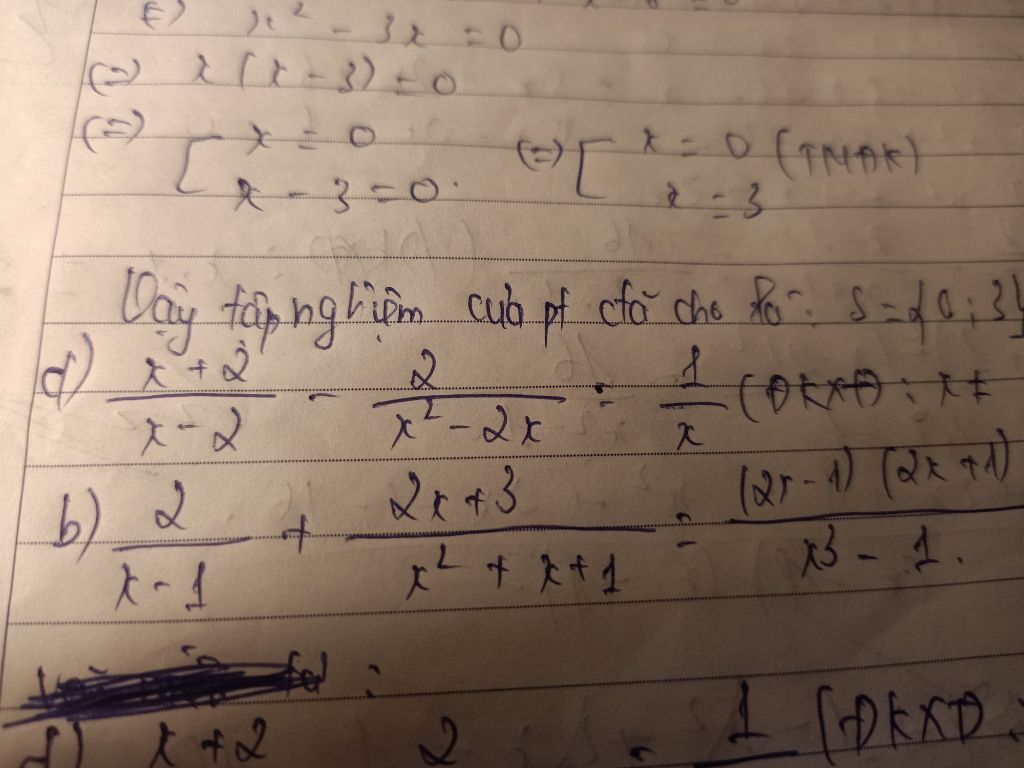 x² - 3x = 0
(=) x (x - 3) = 0
(=) [ x = 0 (=) [ x = 0 (TMĐK)
x - 3 = 0. x = 3
Vậy tập nghiệm của pt đã cho là: S = {0; 3}
d) (x + 2)/(x - 2) - 2/(x² - 2x) = 1/x (ĐKXĐ: x ≠
b) 2/(x - 1) + (2x + 3)/(x² + x + 1) = ((2x - 1) (2x + 1))/(x³ - 1).
d) x + 2 2 = 1 (ĐKXĐ: